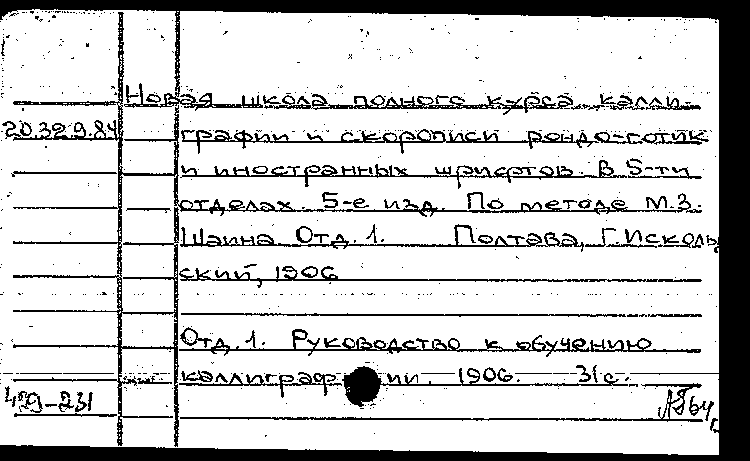 Новая школа полного курса калли-
20.32.9.84 графии и скорописи рондо-готик
и иностранных шрифтов. В 5-ти
отделах. 5-е изд. По методе М.З.
Шаина Отд. 1. Полтава, Г.Исколь
ский, 1906
Отд. 1. Руководство к обучению
каллиграфии. 1906. 31 с.
429-231